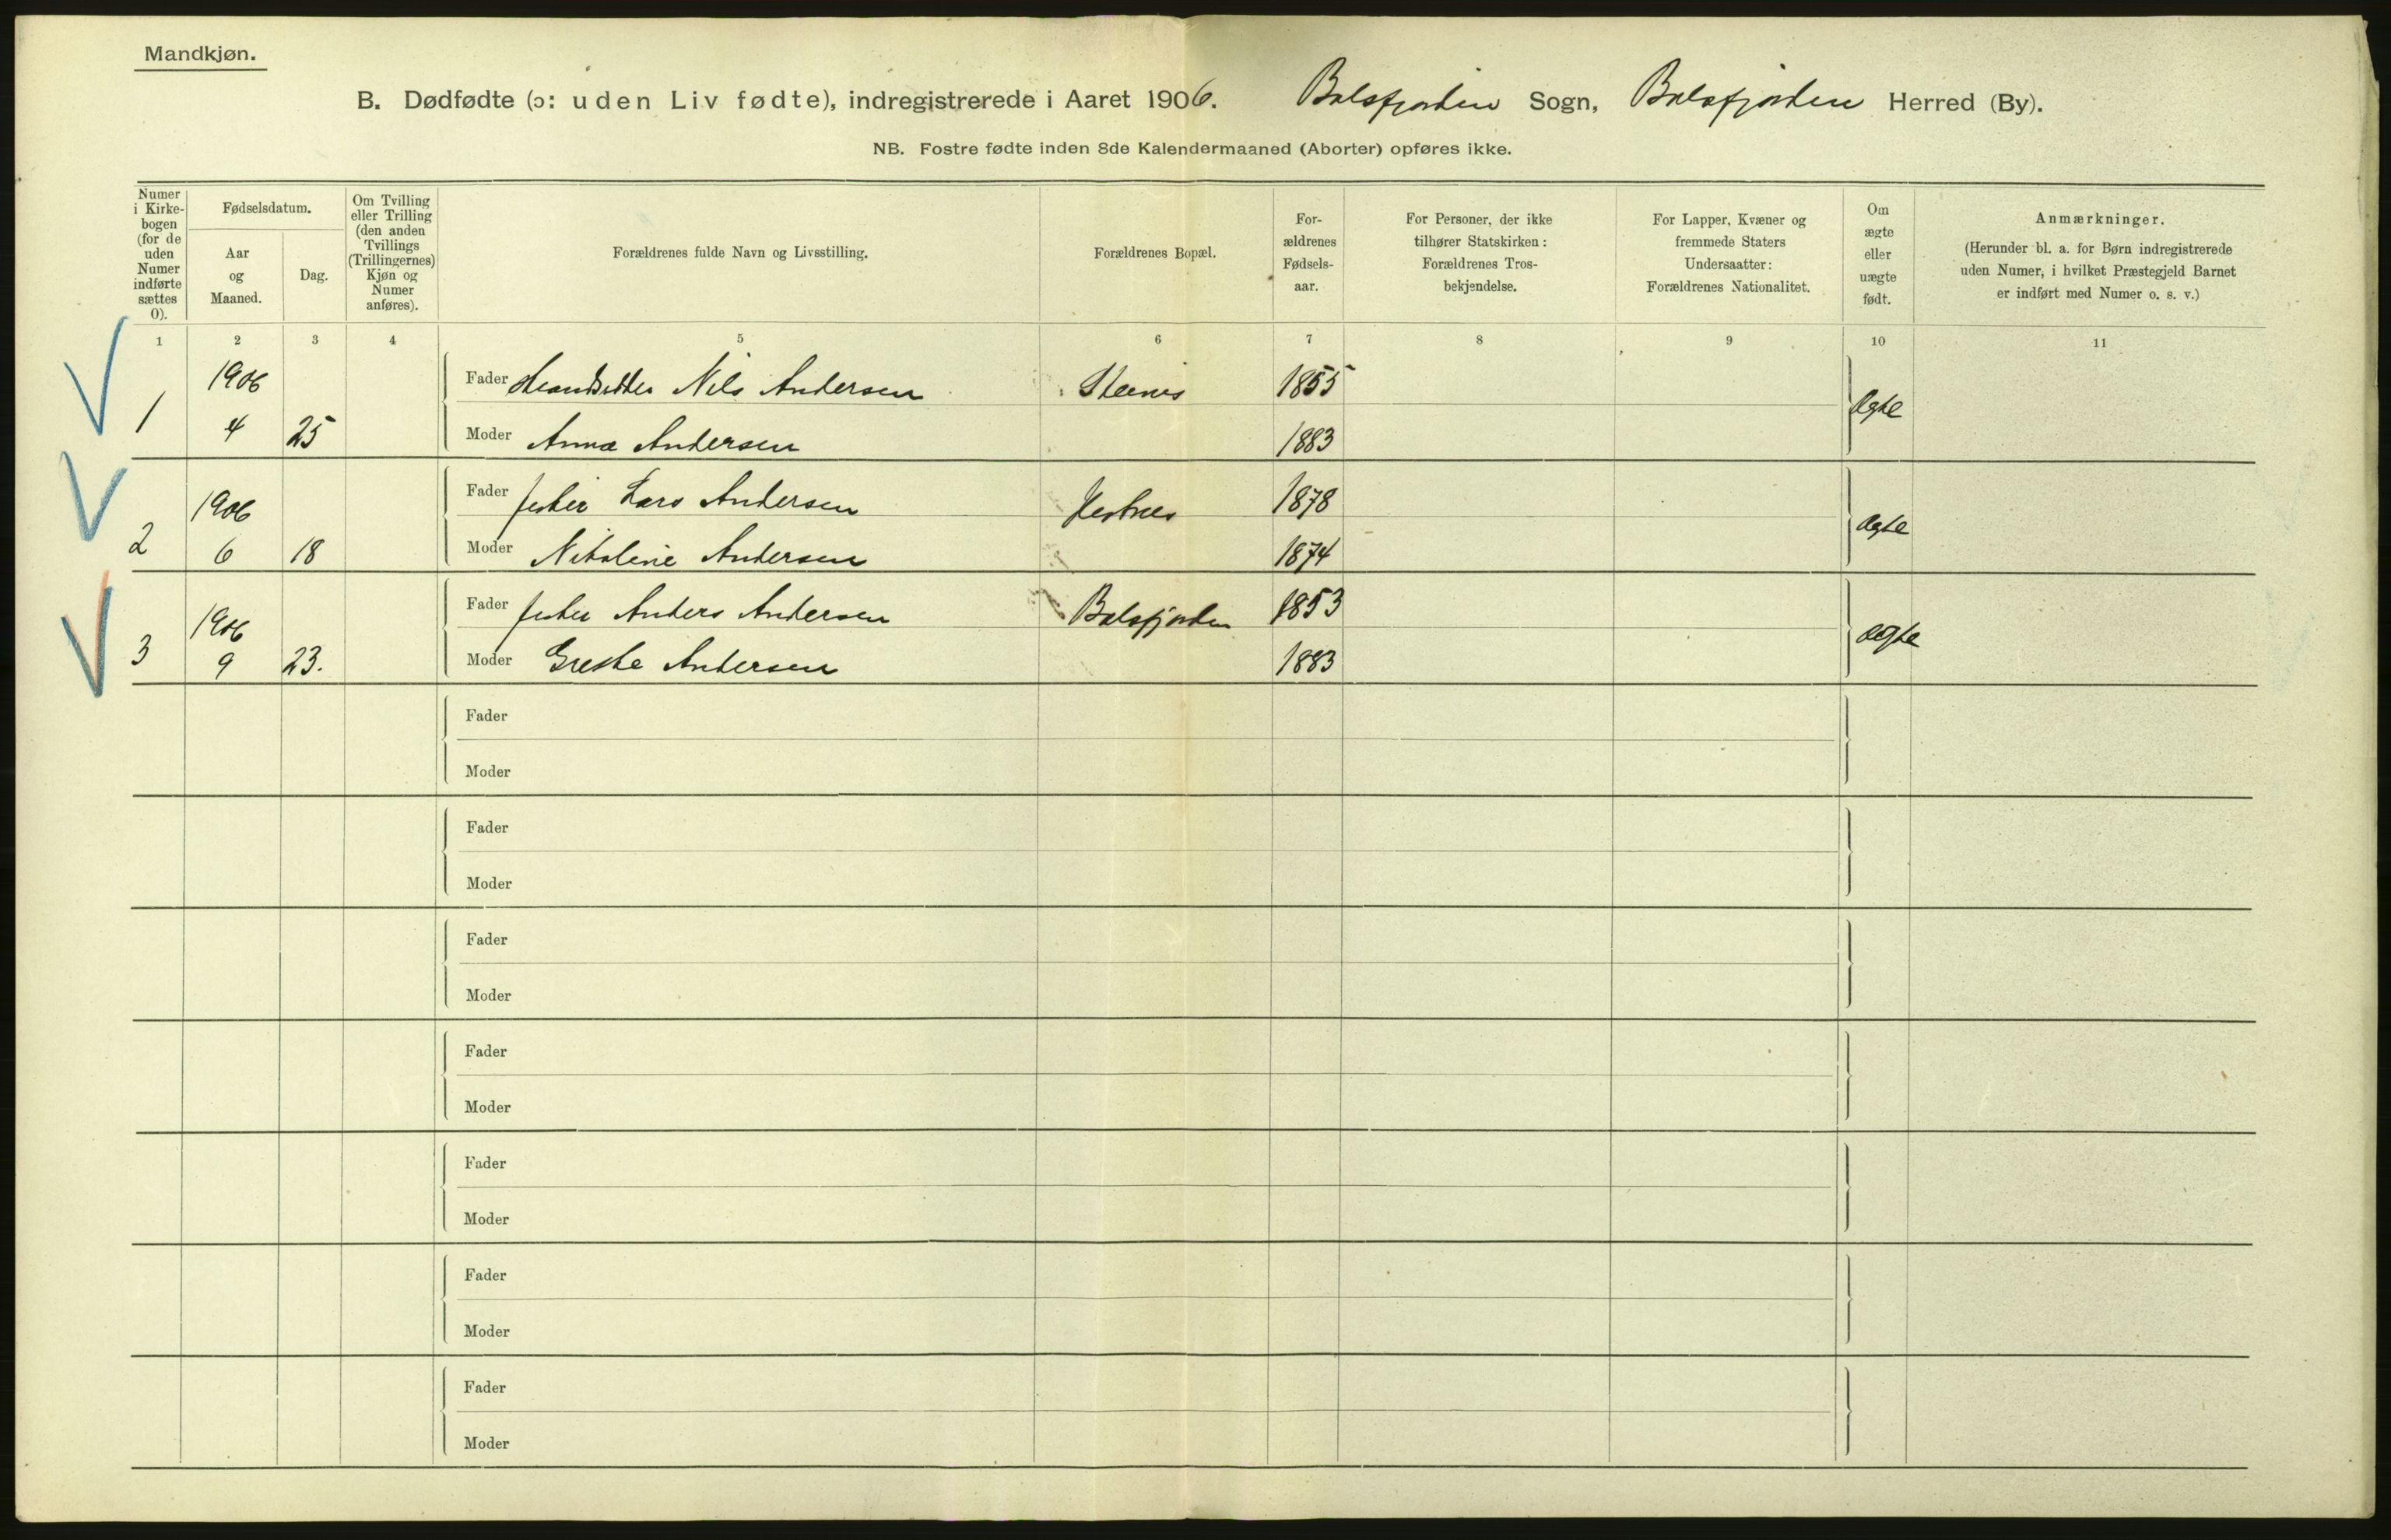 Mandkjøn.
B. Dødfødte (ɔ: uden Liv fødte), indregistrerede i Aaret 1906. Balsfjorden Sogn, Balsfjorden Herred (By).
NB. Fostre fødte inden 8de Kalendermaaned (Aborter) opføres ikke.
Numer i Kirke-bogen (for de uden Numer indførte sættes 0).
Fødselsdatum.
Aar og Maaned.
Dag.
Om Tvilling eller Trilling (den anden Tvillings (Trillingernes) Kjøn og Numer anføres).
Forældrenes fulde Navn og Livsstilling.
Forældrenes Bopæl.
For-ældrenes Fødsels-aar.
For Personer, der ikke tilhører Statskirken: Forældrenes Tros-bekjendelse.
For Lapper, Kvæner og fremmede Staters Undersaatter: Forældrenes Nationalitet.
Om ægte eller uægte født.
Anmærkninger.
(Herunder bl. a. for Børn indregistrerede uden Numer, i hvilket Præstegjeld Barnet er indført med Numer o. s. v.)
1 2 3 4 5 6 7 8 9 10 11
1906 Fader Nils Andersen 1855 ægte
1 4 25 Moder Anna Andersen 1883
1906 Fader Lars Andersen 1878 ægte
2 6 18 Moder Nikoline Andersen 1874
1906 Fader Anders Andersen Balsfjorden 1853 ægte
3 9 23. Moder Grethe Andersen 1883
Fader
Moder
Fader
Moder
Fader
Moder
Fader
Moder
Fader
Moder
Fader
Moder
Fader
Moder